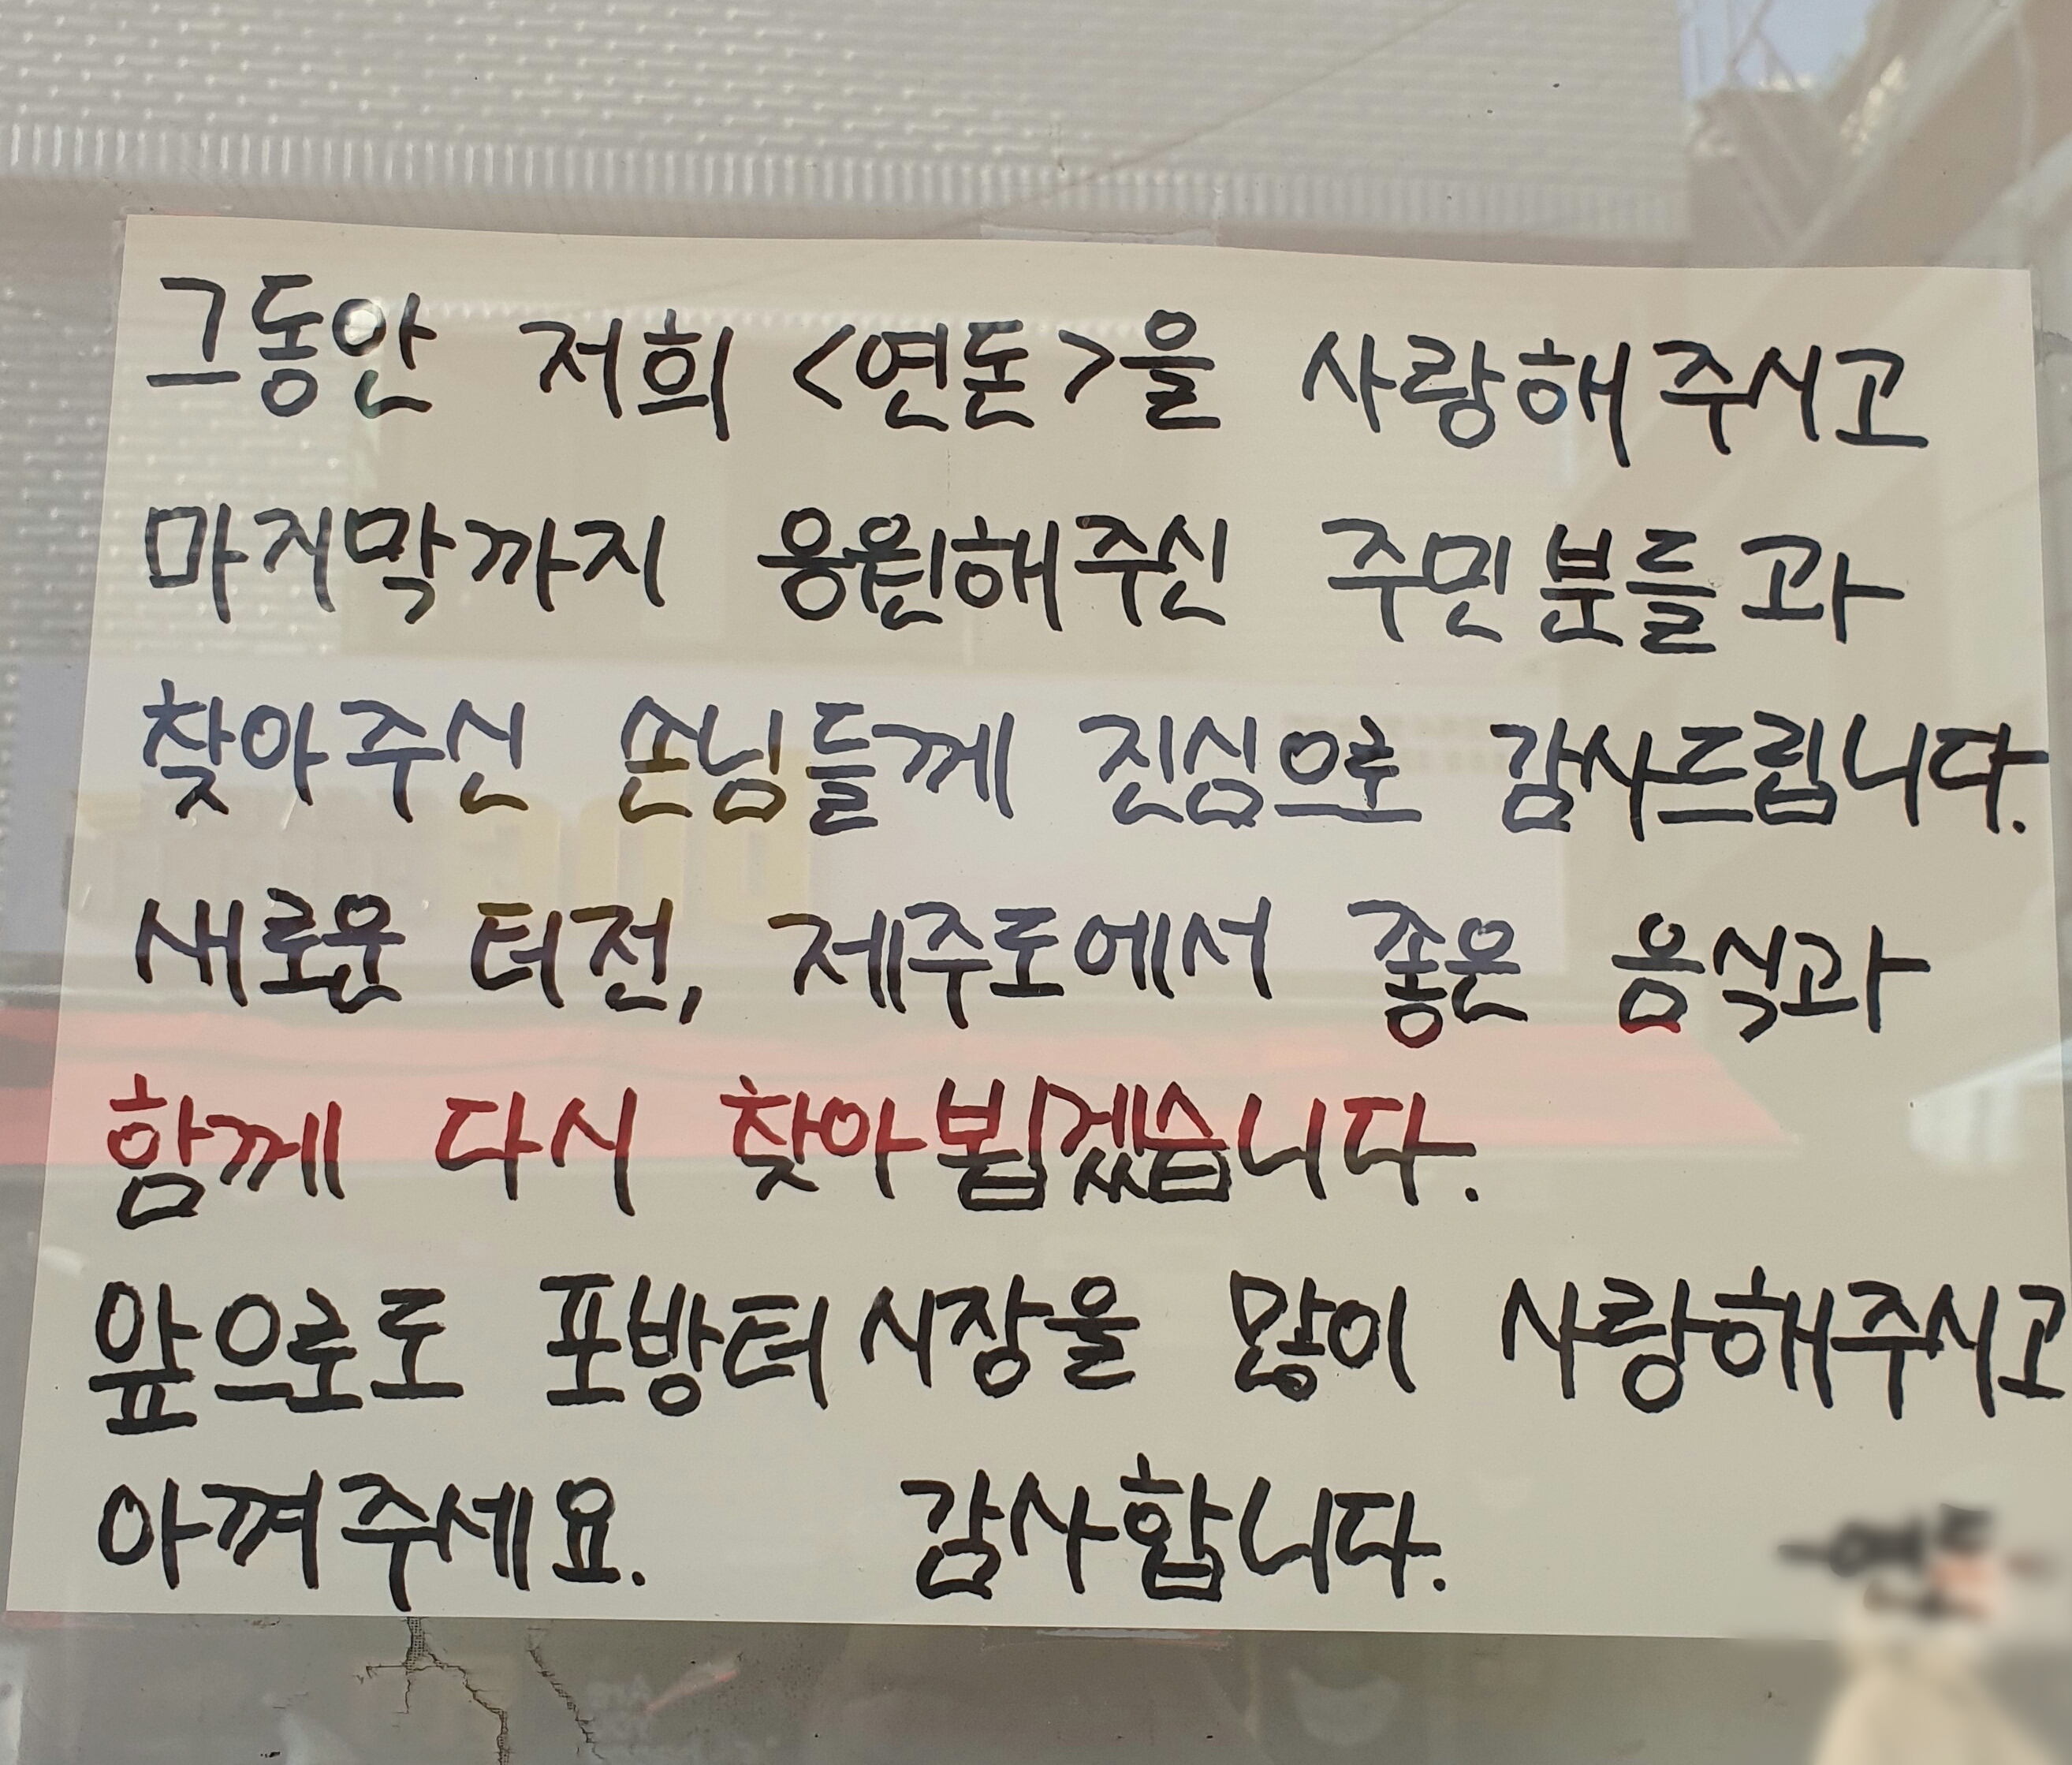 그동안 저희 <연돈>을 사랑해주시고
마지막까지 응원해주신 주민분들과
찾아주신 손님들께 진심으로 감사드립니다.
새로운 터전, 제주도에서 좋은 음식과
함께 다시 찾아뵙겠습니다.
앞으로도 포방터시장을 많이 사랑해주시고
아껴주세요. 감사합니다.